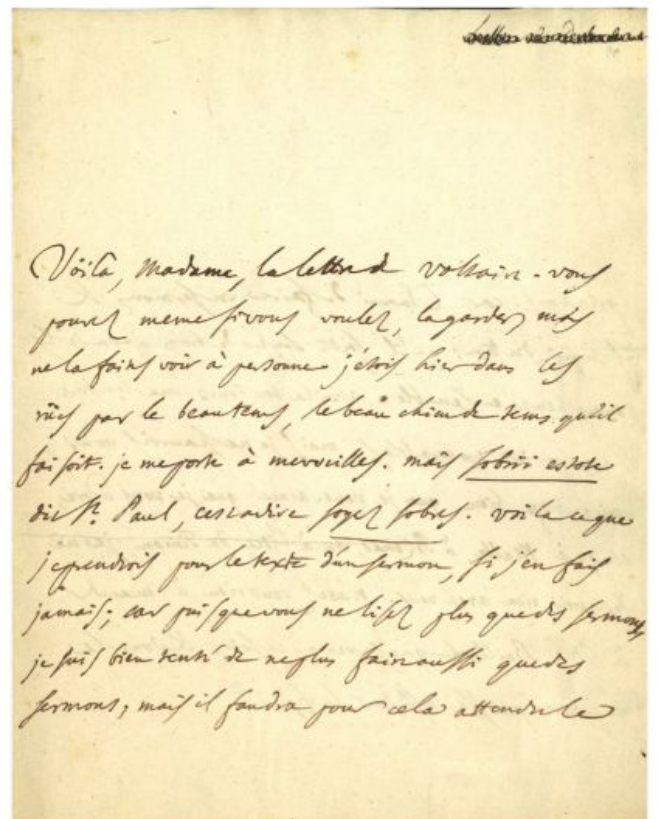 Voila, Madame, la lettre de voltaire - vous
pouvez meme si vous voulez, la garder, mais
ne la faites voir à personne. j'etois hier dans les
rües par le beau tems, le beau chien de tems qu'il
faisoit. je me porte à merveilles. mais sobrii estote
dit St. Paul, cest adire soyez sobres. voila ce que
je prendrois pour le texte d'un sermon, si j'en fais
jamais; car puisque vous ne lisez plus que des sermons,
je suis bien tenté de ne plus faire aussi que des
sermons, mais il faudra pour cela attendre le